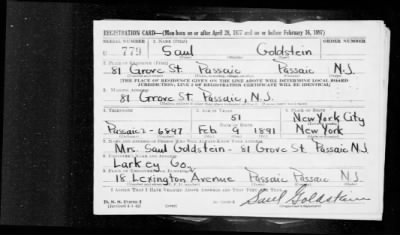 REGISTRATION CARD—(Men born on or after April 28, 1877 and on or before February 16, 1897)
SERIAL NUMBER 1. NAME (Print) ORDER NUMBER
U 779 Saul Goldstein
2. PLACE OF RESIDENCE (Print)
81 Grove St. Passaic Passaic N.J.
[THE PLACE OF RESIDENCE GIVEN ON THE LINE ABOVE WILL DETERMINE LOCAL BOARD
JURISDICTION; LINE 2 OF REGISTRATION CERTIFICATE WILL BE IDENTICAL]
3. MAILING ADDRESS
81 Grove St. Passaic, N.J.
4. TELEPHONE 5. AGE IN YEARS 6. PLACE OF BIRTH
51 New York City
DATE OF BIRTH
Passaic 2-6897 Feb 9 1891 New York
7. NAME AND ADDRESS OF PERSON WHO WILL ALWAYS KNOW YOUR ADDRESS
Mrs. Saul Goldstein - 81 Grove St. Passaic N.J.
8. EMPLOYER'S NAME AND ADDRESS
Larkey Co.
9. PLACE OF EMPLOYMENT OR BUSINESS
18 Lexington Avenue Passaic Passaic N.J.
I AFFIRM THAT I HAVE VERIFIED ABOVE ANSWERS AND THAT THEY ARE TRUE.
D. S. S. Form 1
Saul Goldstein